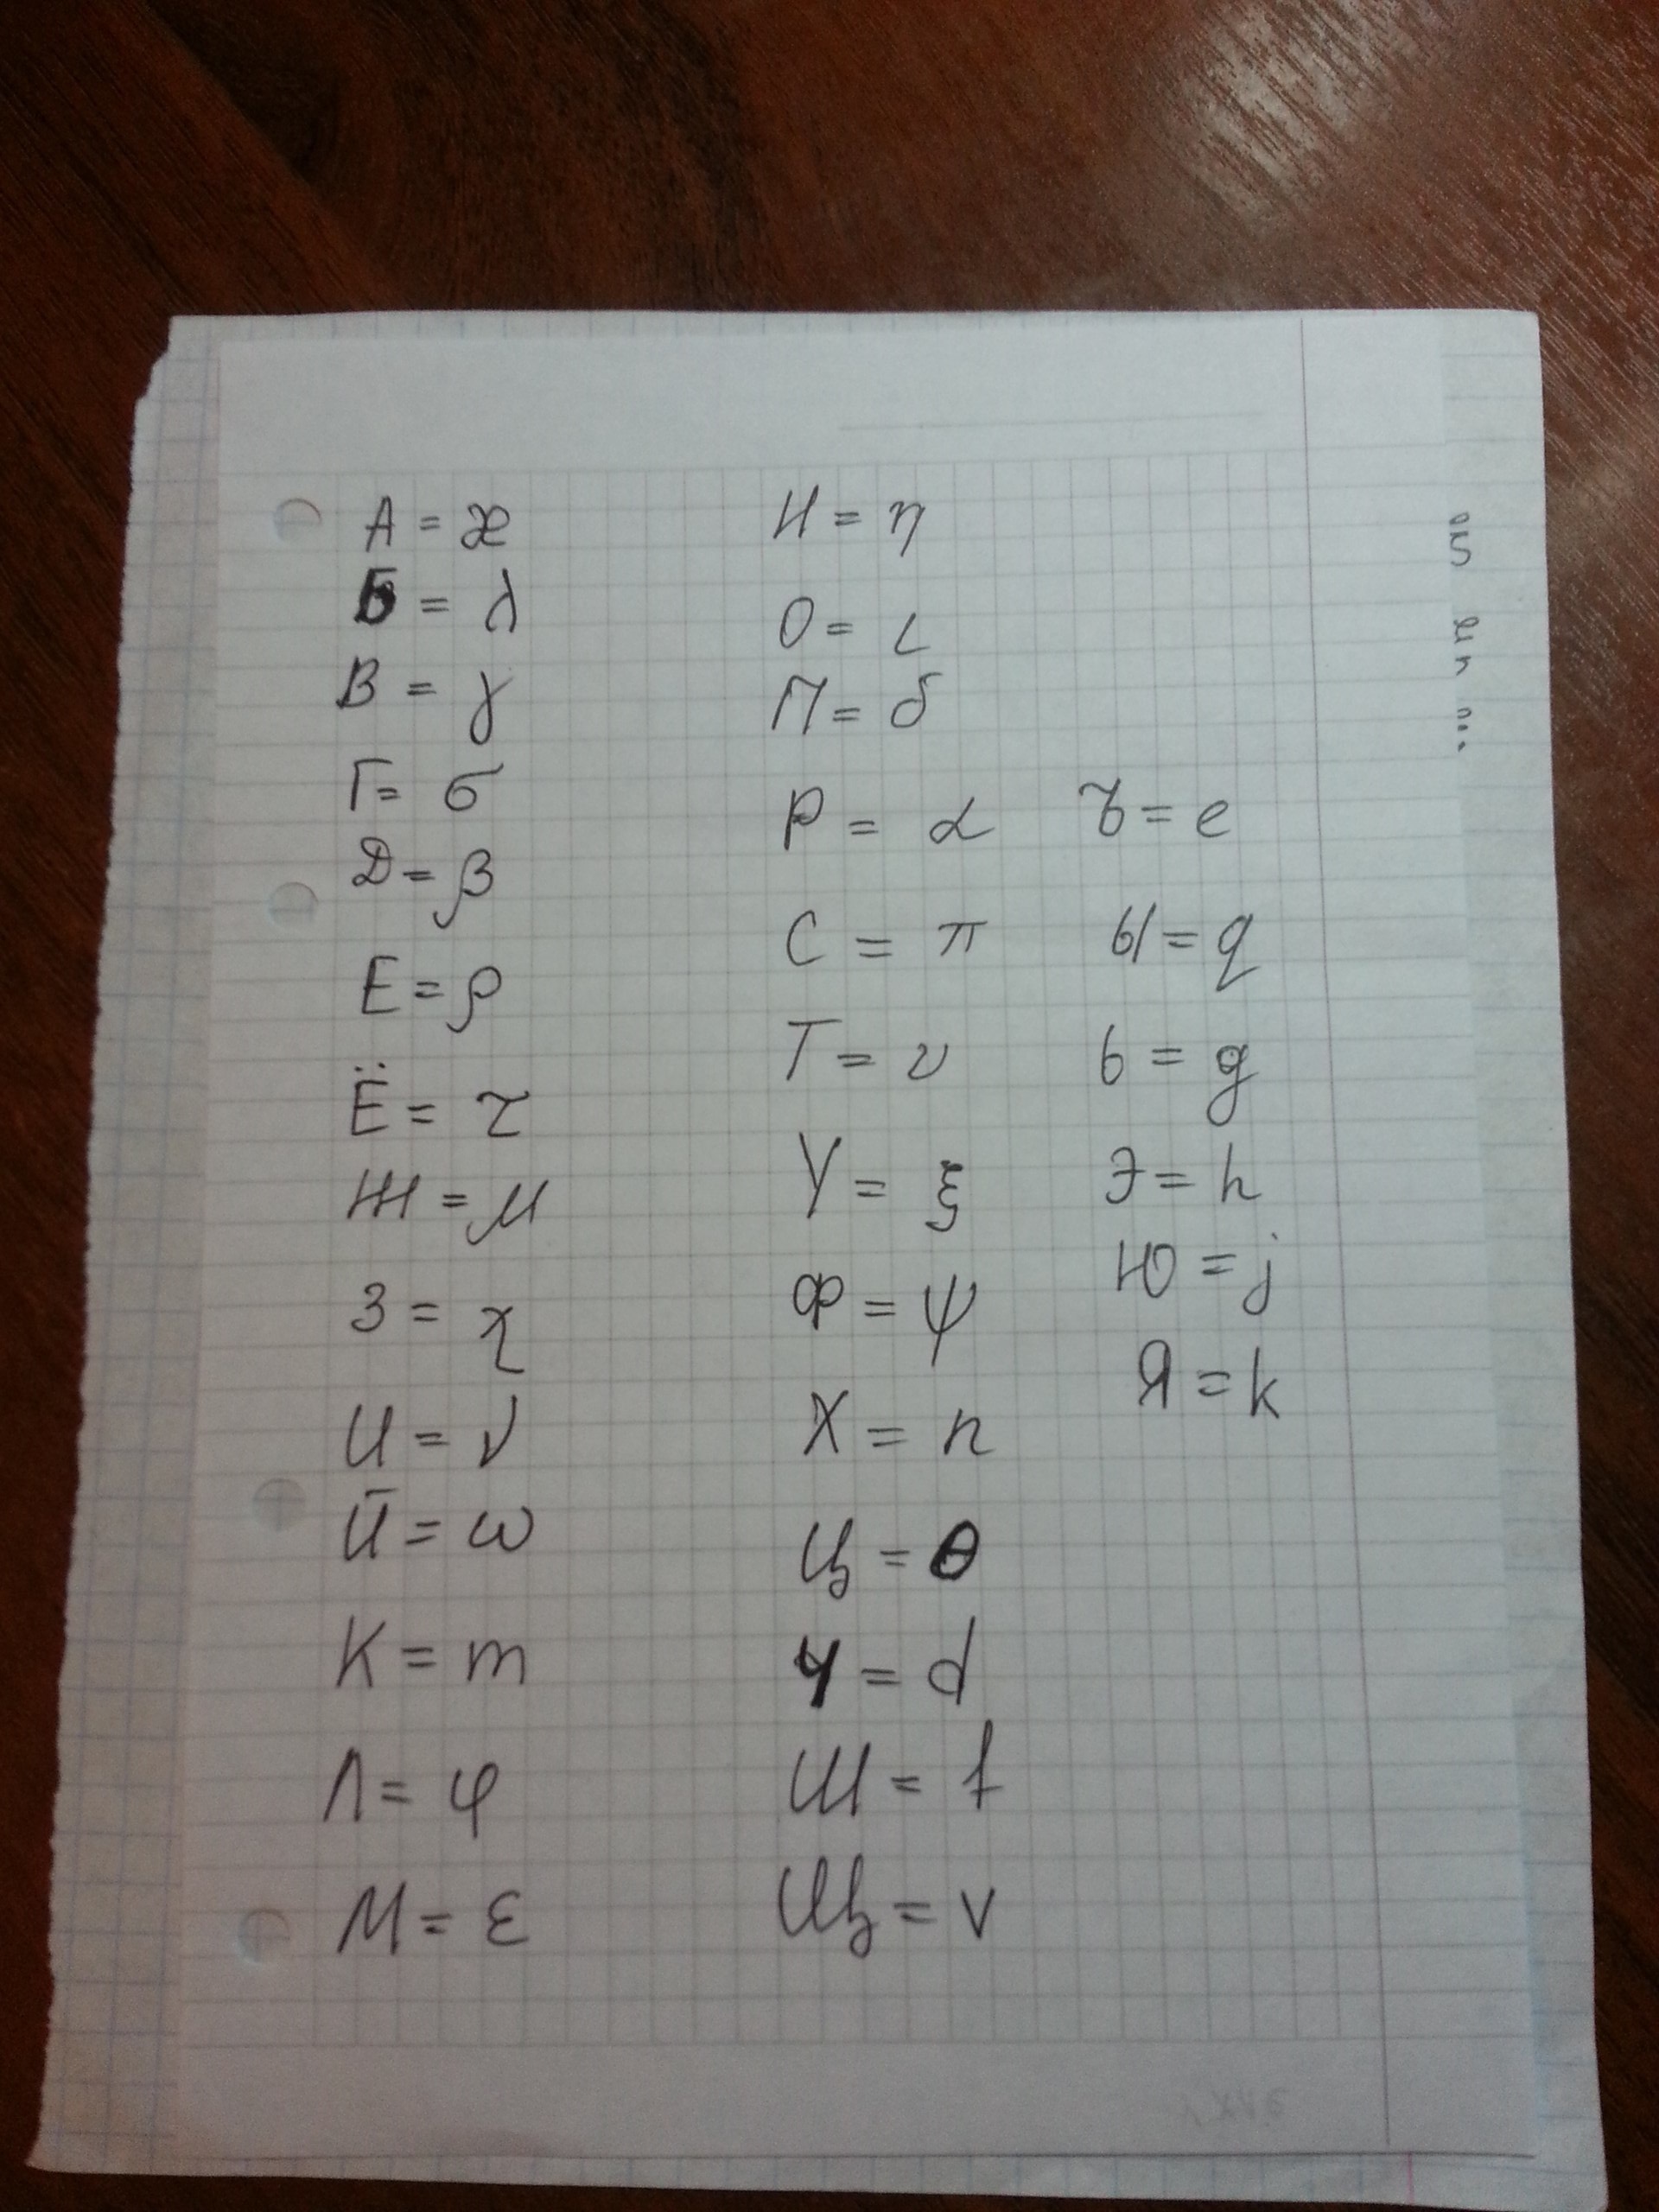 А = æ
Б = λ
В = γ
Г = σ
Д = β
Е = ρ
Ё = τ
Ж = μ
З = χ
И = ν
Й = ω
К = m
Л = φ
М = ε
Н = η
О = ι
П = δ
Р = α
С = π
Т = υ
У = ξ
Ф = ψ
Х = n
Ц = θ
Ч = d
Ш = f
Щ = v
Ъ = e
Ы = q
Ь = g
Э = h
Ю = j
Я = k